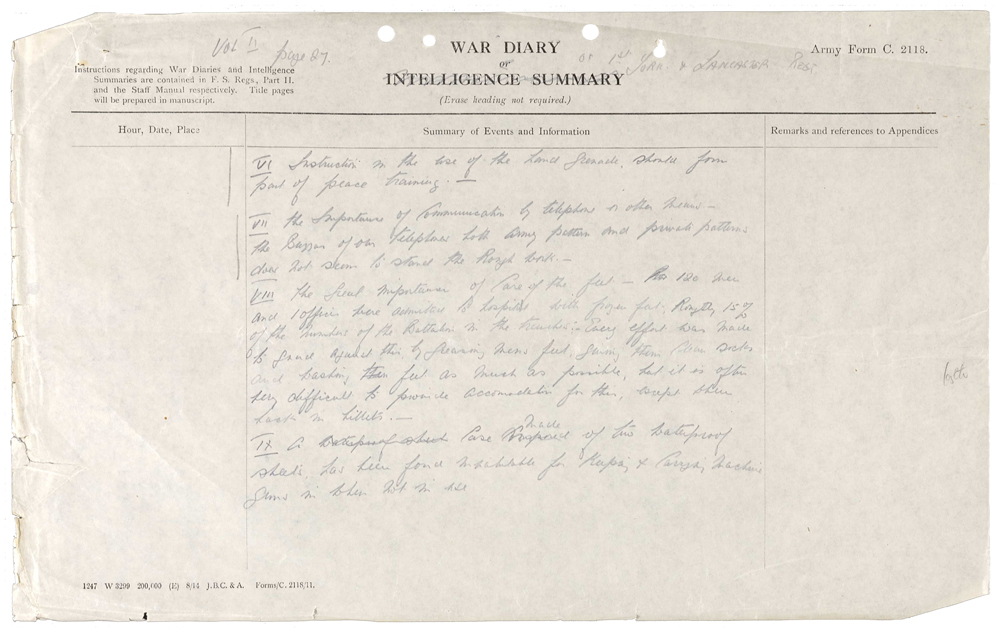 VOL II page 27.
WAR DIARY
or
INTELLIGENCE SUMMARY
of 1st York & Lancaster Regt
Army Form C. 2118.
Instructions regarding War Diaries and Intelligence
Summaries are contained in F. S. Regs., Part II.
and the Staff Manual respectively. Title pages
will be prepared in manuscript.
(Erase heading not required.)
Hour, Date, Place
Summary of Events and Information
Remarks and references to Appendices
VI Instruction in the use of the Hand Grenade, should form
part of peace training. —
VII The Importance of Communication by telephone or other means —
the of our telephones both Army pattern and private patterns
does not seem to stand the rough work. —
VIII The Great importance of Care of the feet — 120 men
and 1 officer were admitted to hospital with frozen feet, Roughly 15%
of the numbers of the Battalion in the trenches. Every effort was made
to guard against this by greasing mens feet, giving them clean socks
and washing their feet as much as possible, but it is often
very difficult to provide accomodation for this, except when
back in billets. —
IX A waterproof sheet Case made of two waterproof
sheets, has been found invaluable for Keeping & Carrying machine
guns in when not in use
1247 W 3299 200,000 (E) 8/14 J.B.C. & A. Forms/C. 2118/11.